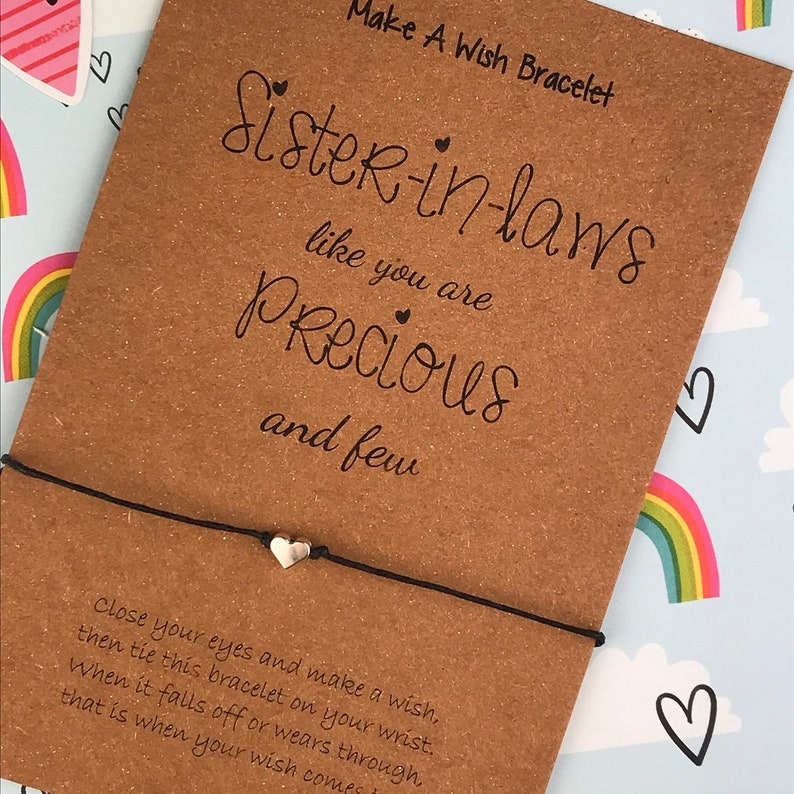 Make A Wish Bracelet
Sister-in-laws
like you are
Precious
and few
Close your eyes and make a wish,
then tie this bracelet on your wrist.
When it falls off or wears through,
that is when your wish comes